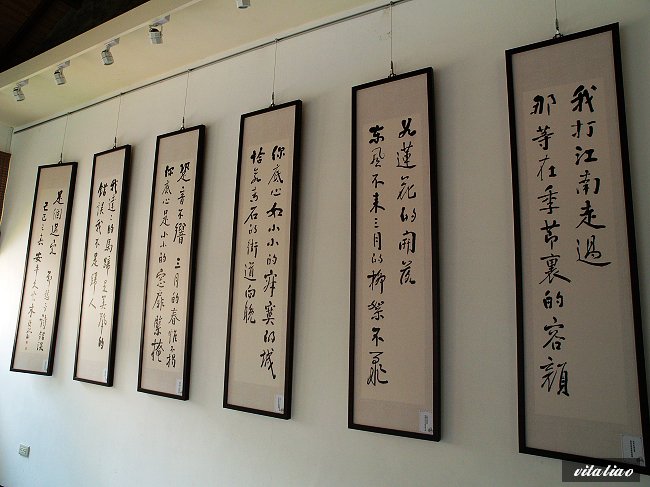 我打江南走過
那等在季節裏的容顏
如蓮花的開落
東風不來三月的柳絮不飛
你底心如小小的寂寞的城
恰若青石的街道向晚
跫音不響 三月的春帷不揭
你底心是小小的窗扉緊掩
我達達的馬蹄是美麗的
錯誤我不是歸人
是個過客 鄭愁予詩錯誤
己巳
vitaliao